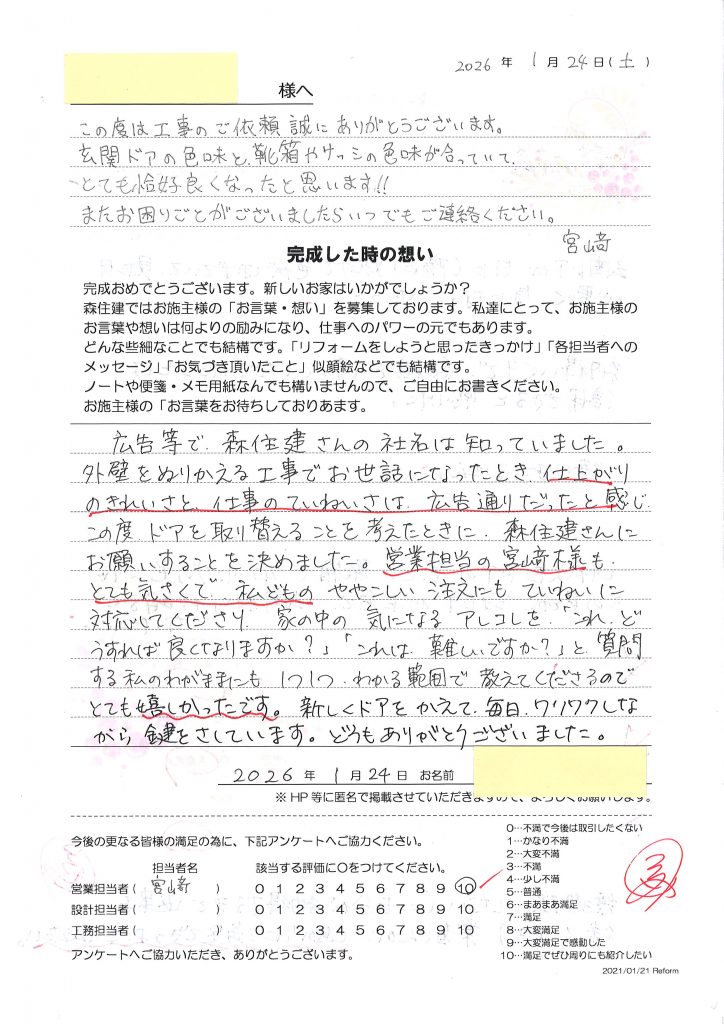 2026 年 1 月 24 日 ( 土 )
様へ
この度は工事のご依頼誠にありがとうございます。
玄関ドアの色味と、靴箱やサッシの色味が合っていて、
とても恰好良くなったと思います!!
またお困りごとがございましたらいつでもご連絡ください。
宮﨑
完成した時の想い
完成おめでとうございます。新しいお家はいかがでしょうか?
森住建ではお施主様の「お言葉・想い」を募集しております。私達にとって、お施主様の
お言葉や想いは何よりの励みになり、仕事へのパワーの元でもあります。
どんな些細なことでも結構です。「リフォームをしようと思ったきっかけ」「各担当者への
メッセージ」「お気づき頂いたこと」似顔絵などでも結構です。
ノートや便箋・メモ用紙なんでも構いませんので、ご自由にお書きください。
お施主様の「お言葉をお待ちしておりあます。
広告等で、森住建さんの社名は知っていました。
外壁をぬりかえる工事でお世話になったとき、仕上がり
のきれいさと、仕事のていねいさは、広告通りだったと感じ
この度、ドアを取り替えることを考えたときに、森住建さんに
お願いすることを決めました。営業担当の宮﨑様も、
とても気さくで、私どもの ややこしい注文にも ていねいに
対応してくださり、家の中の 気になる アレコレを、「これ、ど
うすれば良くなりますか?」「これは、難しいですか?」と、質問
する私のわがままにも 1つ1つ、わかる範囲で 教えてくださるので
とても嬉しかったです。新しくドアを かえて、毎日、ワクワクしな
がら 鍵をさしています。どうもありがとうございました。
2026 年 1 月 24 日 お名前
※ HP 等に匿名で掲載させていただきますので、よろしくお願いします。
今後の更なる皆様の満足の為に、下記アンケートへご協力ください。
担当者名 該当する評価に○をつけてください。
営業担当者( 宮﨑 ) 0 1 2 3 4 5 6 7 8 9 10
設計担当者( ) 0 1 2 3 4 5 6 7 8 9 10
工務担当者( ) 0 1 2 3 4 5 6 7 8 9 10
アンケートへご協力いただき、ありがとうございます。
0…不満で今後は取引したくない
1…かなり不満
2…大変不満
3…不満
4…少し不満
5…普通
6…まあまあ満足
7…満足
8…大変満足
9…大変満足で感動した
10…満足でぜひ周りにも紹介したい
2021/01/21 Reform